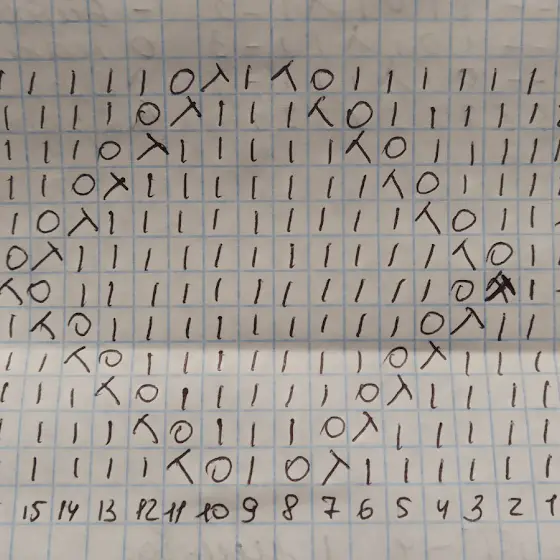 | | | | | O λ | ⋌ O | | | | | |
| | | | O λ | | | ⋌ O | | | | |
| | | O λ | | | | | ⋌ O | | | |
| | O λ | | | | | | | ⋌ O | | |
| O λ | | | | | | | | | ⋌ O | |
O λ | | | | | | | | | | | ⋌ O |
⋌ O | | | | | | | | | | | O |
| ⋌ O | | | | | | | | | O λ | |
| | ⋌ O | | | | | | | O λ | | |
| | | ⋌ O | | | | | O λ | | | |
| | | | ⋌ O | | | O λ | | | | |
| | | | ⋌ O | O λ | | | | | |
15 14 13 12 11 10 9 8 7 6 5 4 3 2 1